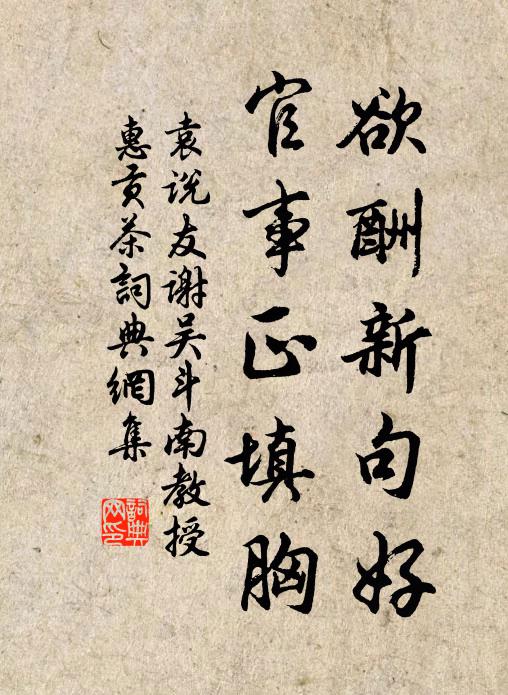 欲酬新句好
官事正填胸
袁说友谢吴斗南教授
惠贡茶詞典網集
詞典
网印